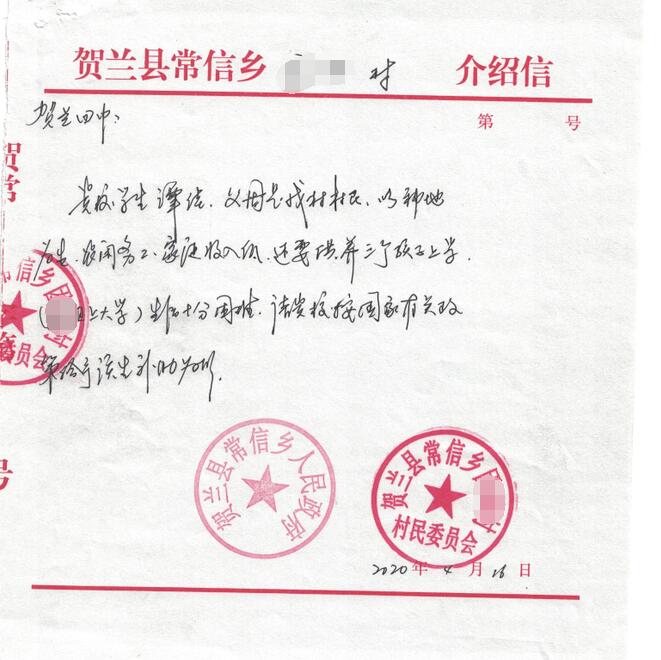 贺兰县常信乡 村 介绍信
贺兰 中：
第 号
贵校学生谭 ，父母是我村村民，以种地
为生，农闲务工，家庭收入低，还要供养三个孩子上学，
( 上大学）生活十分困难，请贵校按国家有关政
策给予该生补助为盼。
贺兰县常信乡人民政府
贺兰县常信乡
村民委员会
2020年4月26日
贺
常
信乡
员会
号